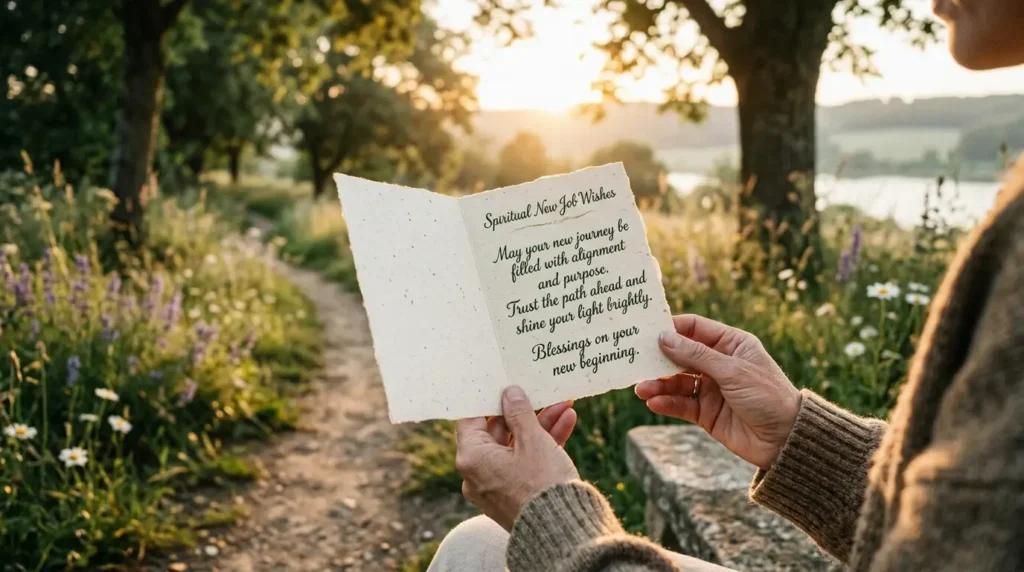 Spiritual New Job Wishes
May your new journey be
filled with alignment
and purpose.
Trust the path ahead and
shine your light brightly.
Blessings on your
new beginning.